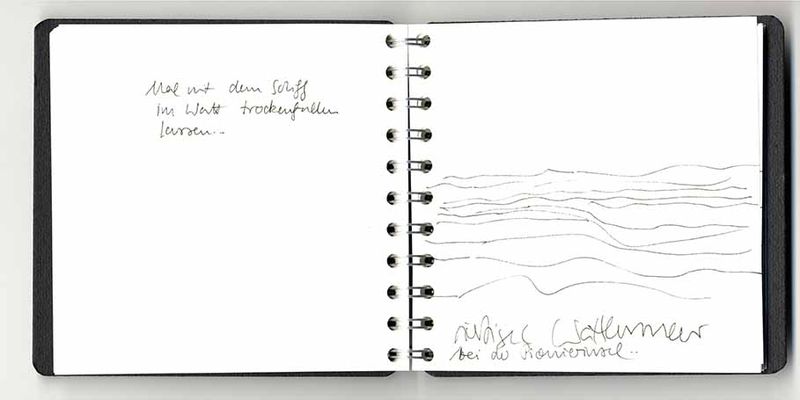 Mal mit dem Schiff
im Watt trockenfallen
lassen...
Wattenmeer
bei der